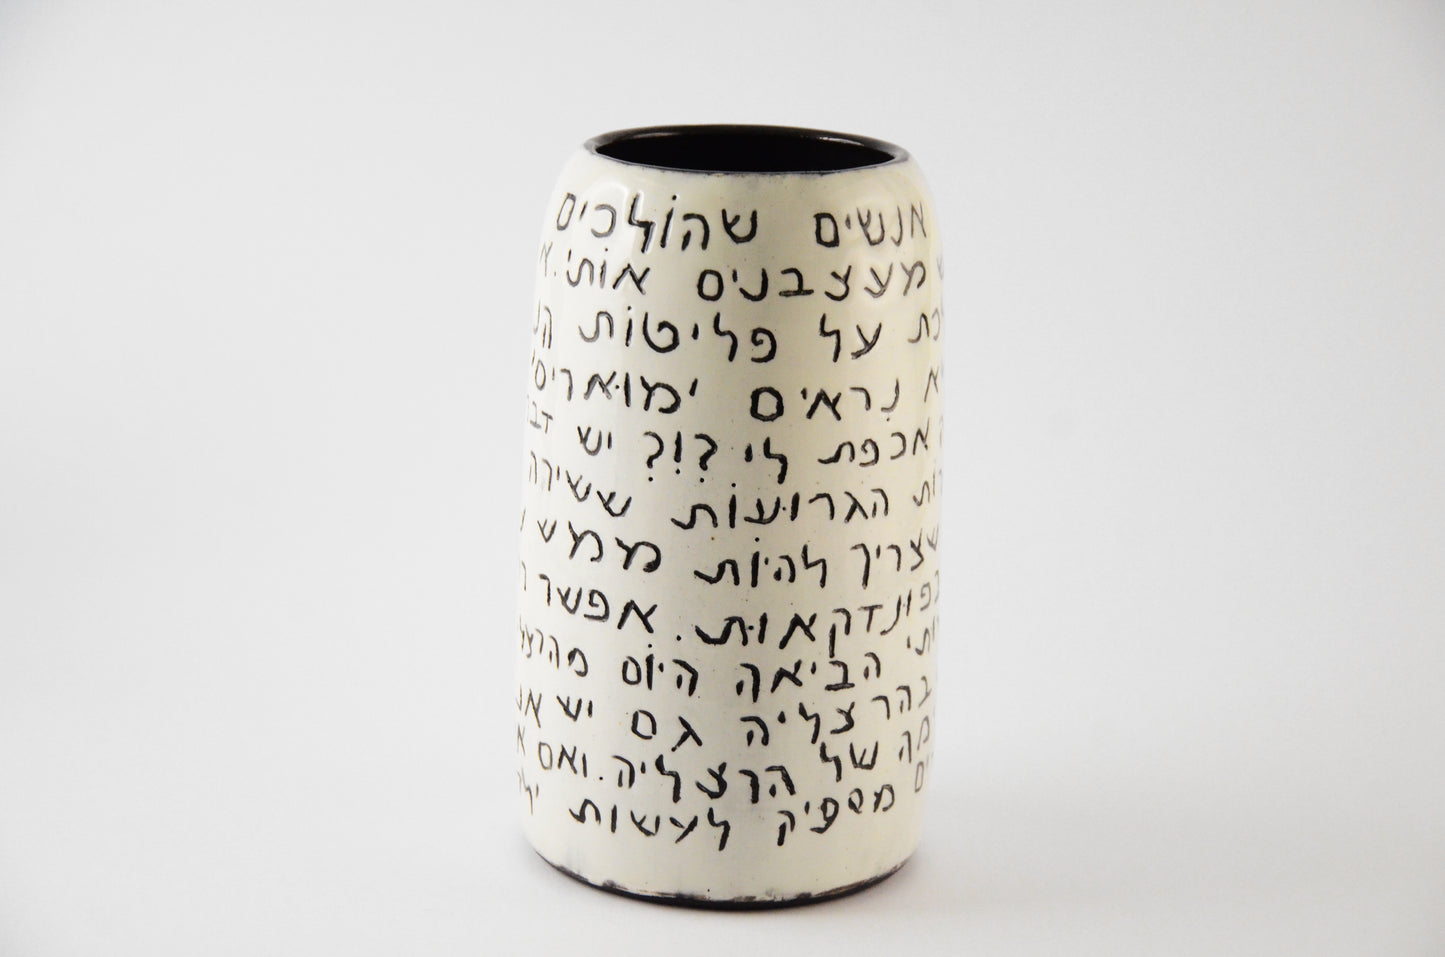 אנשים שהולכים
מעצבנים אותי.
על פליטות
נראים ימואריסי
אכפת לי ?!? יש
הגרועות ששירה
שצריך להיות ממש
בפונדקאות. אפשר
הביאה היום מהרצל
בהרצליה גם יש
של הרצליה. ואם
מספיק לעשות